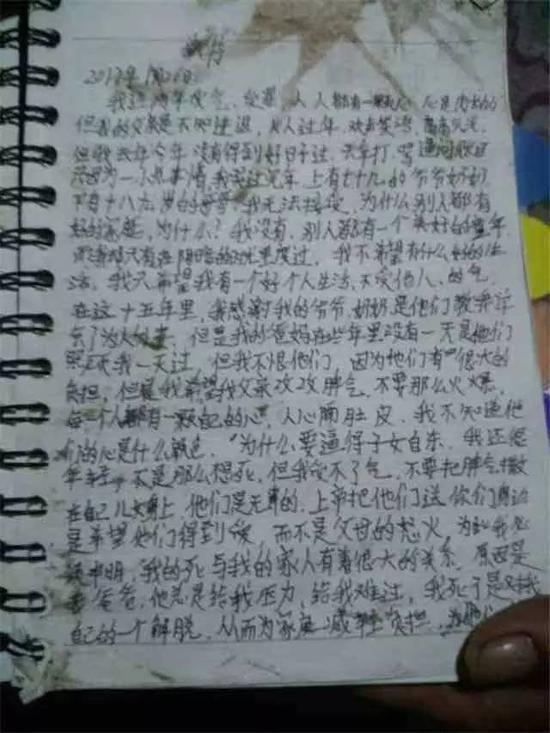 2017年1月26日
我这两年受气、受累,人人都有一颗心,心是肉长的
但我的父亲是不知进退,别人过年,欢声笑语,高高兴兴,
但我去年今年没有得到好日子过,去年打
只因为一个小事情,我 过完年,上有七十几的爷爷奶奶
下有十八九岁的哥哥,我无法接受,为什么别人都有
好的家庭,为什么?我没有,别人都有一个美好的童年,
而我却只有在阴暗的 里度过,我不希望有什么好的生
活,我只希望我有一个好个人生活,不受他人的气,
在这十五年里,我感谢我的爷爷、奶奶是他们教我学
会了为人处事,但是我的爸妈在些年里没有一天是他们
陪我一天过,但我不恨他们,因为他们有很大的
负担,但是我希望我父亲改改脾气,不要那么火爆,
每一个人都有一颗自己的心,人心隔肚皮,我不知道他
们的心是什么颜色,"为什么要逼得子女自杀,我还很
年轻,不是那么想死,但我受不了气,不要把脾气撒
在自己儿女身上,他们是无辜的,上帝把他们送你们身边
是希望他们得到 ,而不是父母的怒火,
声明,我的死与我的家人有着很大的关系,原因是
我爸爸,他总是给我压力,给我难过,我死了是对我
自己的一个解脱,从而为家庭减轻负担,